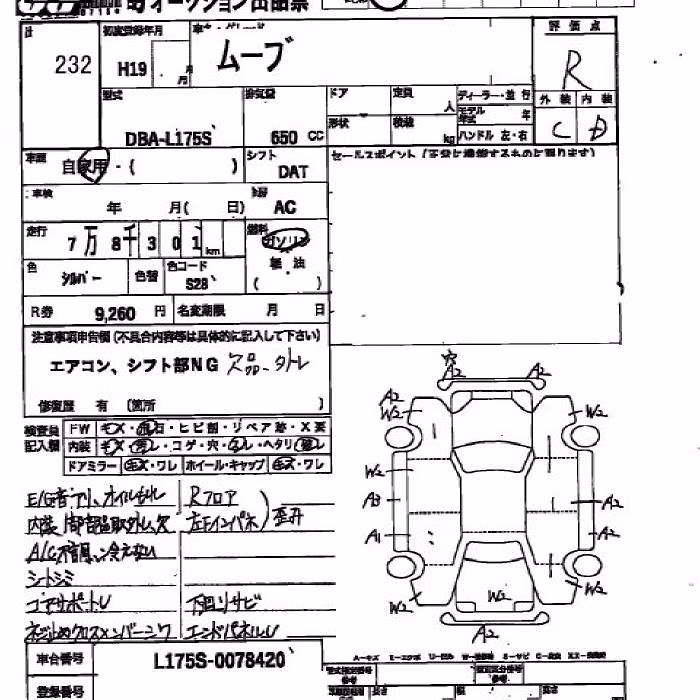 オークション出品票
232
初度登録年月
H19 月
ムーブ
評価点
R
型式
DBA-L175S
排気量
650 CC
ドア
定員
人
ディーラー・並行
モデル年式
年
形状
積載
kg
ハンドル 左・右
外装 内装
C D
車歴
自家用・( )
シフト
DAT
セールスポイント (正常に機能するものに限ります)
車検
年 月( 日)
AC
走行
7万8千301km
燃料
ガソリン
軽油
( )
色
シルバー
色替
色コード
S28
R券
9,260 円
名変期限 月 日
注意事項申告欄(不具合内容等は具体的に記入して下さい)
エアコン、シフト部NG 欠品・外レ
修復歴 有 (箇所 )
検査員記入欄
FW キズ・飛石・ヒビ割・リペア跡・X要
内装 キズ・汚レ・コゲ・穴・スレ・ヘタリ
ドアミラー キズ・ワレ ホイール・キャップ キズ・ワレ
E/G音アリ、オイルモレ
Rフロア
歪ミ
A/C
シートシミ
コアサポートU
下回リサビ
エンドパネルU
穴
A2
A2
A2
W2
W2
W2
A3
A2
A1
A2
W2
W2
W2
A2
A-キズ E-エクボ U-凹み W-波 S-サビ C-腐食
車台番号
L175S-0078420
型式指定番号
類別区分番号
登録番号
長さ
幅
高さ